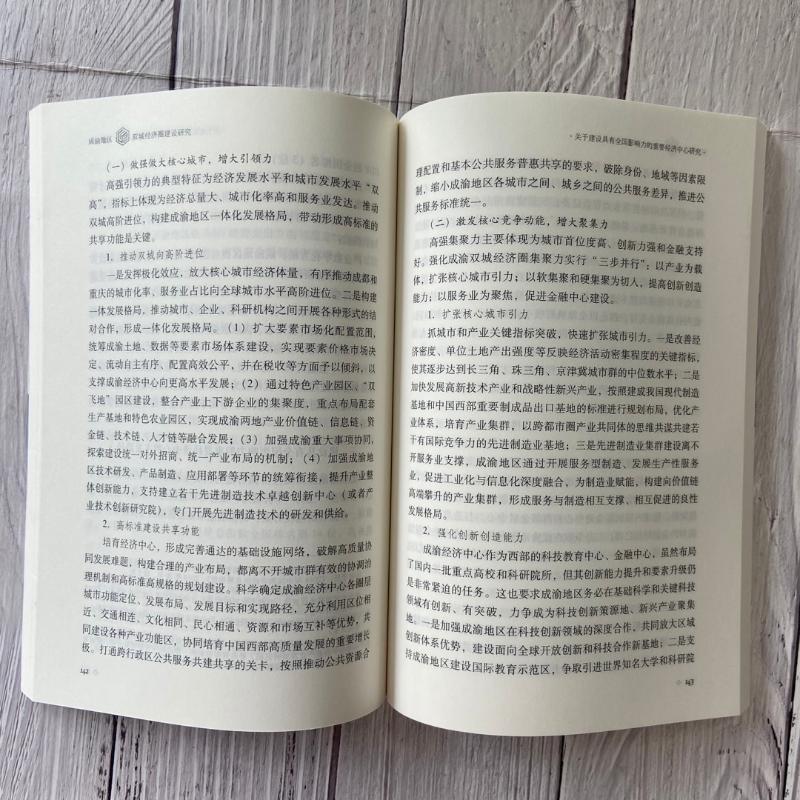 成渝地区 双城经济圈建设研究
（一）做强做大核心城市，增大引领力
高强引领力的典型特征为经济发展水平和城市发展水平“双
高”，指标上体现为经济总量大、城市化率高和服务业发达。推动
双城高阶进位，构建成渝地区一体化发展格局，带动形成高标准的
共享功能是关键。
1. 推动双城向高阶进位
一是发挥极化效应，放大核心城市经济体量，有序推动成都和
重庆的城市化率、服务业占比向全球城市水平高阶进位。二是构建
一体发展格局，推动城市、企业、科研机构之间开展各种形式的结
对合作，形成一体化发展格局。（1）扩大要素市场化配置范围，
统筹成渝土地、数据等要素市场体系建设，实现要素价格市场决
定、流动自主有序、配置高效公平，并在税收等方面予以倾斜，以
支撑成渝经济中心向更高水平发展；（2）通过特色产业园区、“双
飞地”园区建设，整合产业上下游企业的集聚度，重点布局配套
生产基地和特色农业园区，实现成渝两地产业价值链、信息链、资
金链、技术链、人才链等融合发展；（3）加强成渝重大事项协同，
探索建设统一对外招商、统一产业布局的机制；（4）加强成渝地
区技术研发、产品制造、应用部署等环节的统筹衔接，提升产业整
体创新能力，支持建立若干先进制造技术卓越创新中心（或者产
业技术创新研究院），专门开展先进制造技术的研发和供给。
2. 高标准建设共享功能
培育经济中心，形成完善通达的基础设施网络，破解高质量协
同发展难题，构建合理的产业布局，都离不开城市群有效的协调治
理机制和高标准高规格的规划建设。科学确定成渝经济中心各圈层
城市功能定位、发展布局、发展目标和实现路径，充分利用区位相
近、交通相连、文化相同、民心相通、资源和市场互补等优势，共
同建设各种产业功能区，协同培育中国西部高质量发展的重要增长
极。打通跨行政区公共服务共建共享的关卡，按照推动公共资源合
142
关于建设具有全国影响力的重要经济中心研究
理配置和基本公共服务普惠共享的要求，破除身份、地域等因素限
制，缩小成渝地区各城市之间、城乡之间的公共服务差异，推进公
共服务标准统一。
（二）激发核心竞争动能，增大聚集力
高强集聚力主要体现为城市首位度高、创新力强和金融支持
好。强化成渝双城经济圈集聚力实行“三步并行”：以产业为载
体，扩张核心城市引力；以软集聚和硬集聚为切入，提高创新创造
能力；以服务业为聚焦，促进金融中心建设。
1. 扩张核心城市引力
抓城市和产业关键指标突破，快速扩张城市引力。一是改善经
济密度、单位土地产出强度等反映经济活动密集程度的关键指标，
使其逐步达到长三角、珠三角、京津冀城市群的中位数水平；二是
加快发展高新技术产业和战略性新兴产业，按照建成我国现代制造
基地和中国西部重要制成品出口基地的标准进行规划布局，优化产
业体系，培育产业集群，以跨都市圈产业共同体的思维共谋共建若
干有国际竞争力的先进制造业基地；三是先进制造业集群建设离不
开服务业支撑，成渝地区通过开展服务型制造、发展生产性服务
业，促进工业化与信息化深度融合，为制造业赋能，构建向价值链
高端攀升的产业集群，形成服务与制造相互支撑、相互促进的良性
发展格局。
2. 强化创新创造能力
成渝经济中心作为西部的科技教育中心、金融中心，虽然布局
了国内一批重点高校和科研院所，但其创新能力提升和要素升级仍
是非常紧迫的任务。这也要求成渝地区务必在基础科学和关键科技
领域有创新、有突破，力争成为科技创新策源地、新兴产业聚集
地。一是加强成渝地区在科技创新领域的深度合作，共同放大区域
创新体系优势，建设面向全球开放创新和科技合作新基地；二是支
持成渝地区建设国际教育示范区，争取引进世界知名大学和科研院
143